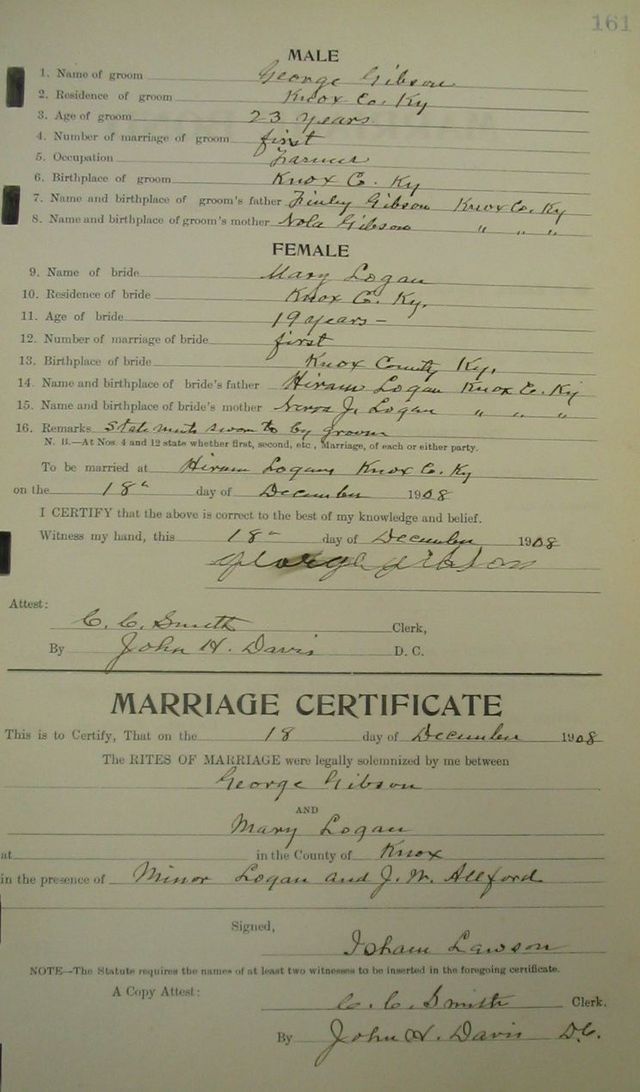 161
MALE
1. Name of groom George Gibson
2. Residence of groom Knox Co. Ky
3. Age of groom 23 years
4. Number of marriage of groom first
5. Occupation Farmer
6. Birthplace of groom Knox C. Ky
7. Name and birthplace of groom's father Finley Gibson Knox Co. Ky
8. Name and birthplace of groom's mother Nola Gibson " " "
FEMALE
9. Name of bride Mary Logan
10. Residence of bride Knox C. Ky.
11. Age of bride 19 years -
12. Number of marriage of bride first
13. Birthplace of bride Knox County Ky.
14. Name and birthplace of bride's father Hiram Logan Knox Co. Ky
15. Name and birthplace of bride's mother J. Logan " " "
16. Remarks Statements sworn to by groom
N. B.—At Nos. 4 and 12 state whether first, second, etc., Marriage, of each or either party.
To be married at Hiram Logans Knox Co. Ky
on the 18" day of December 1908
I CERTIFY that the above is correct to the best of my knowledge and belief.
Witness my hand, this 18 - day of December 1908
George Gibson
Attest:
C. C. Smith Clerk,
By John H. Davis D. C.
MARRIAGE CERTIFICATE
This is to Certify, That on the 18 day of December 1908
The RITES OF MARRIAGE were legally solemnized by me between
George Gibson
AND
Mary Logan
at in the County of Knox
in the presence of Minor Logan and J. W. Allford
Signed,
Isham Lawson
NOTE—The Statute requires the names of at least two witnesses to be inserted in the foregoing certificate.
A Copy Attest: C. C. Smith Clerk.
By John H. Davis D.C.